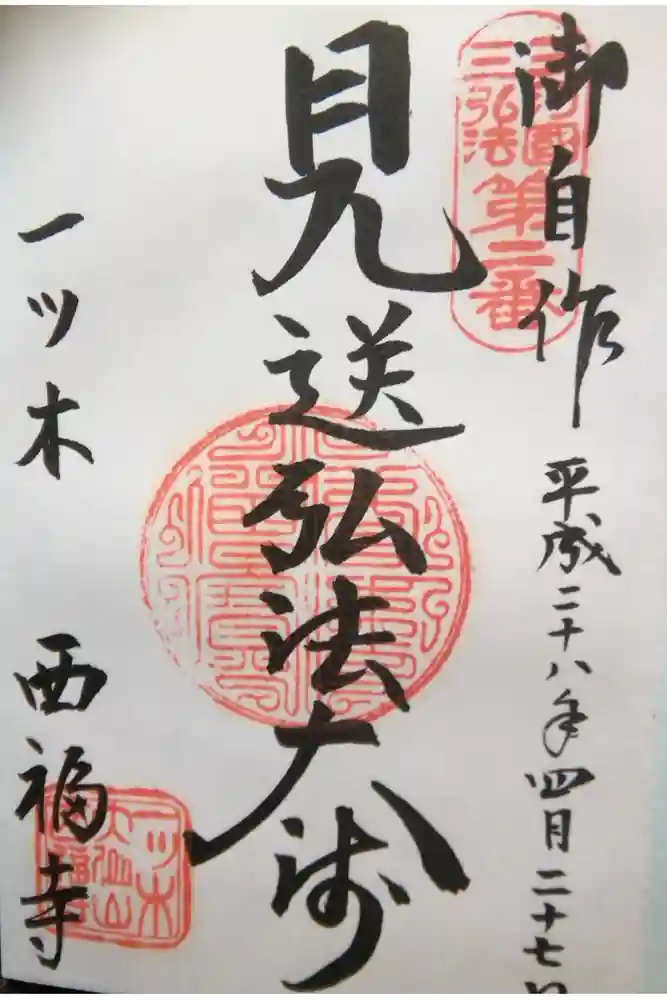 御自作
平成二十八年四月二十七日
三河國
三弘法
第二番
見送弘法大師
一ツ木
西福寺
一ツ木